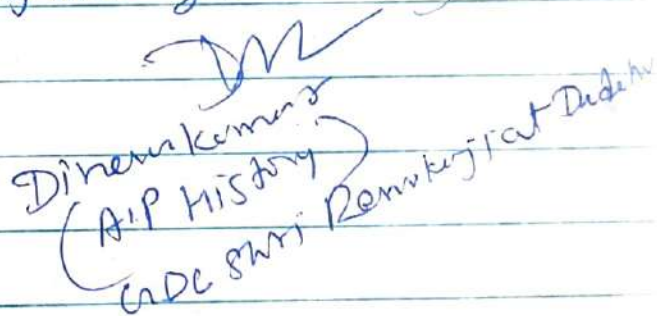 Dinesh Kumar
(A.P History)
GDC Shri Renukaji at Dadahu